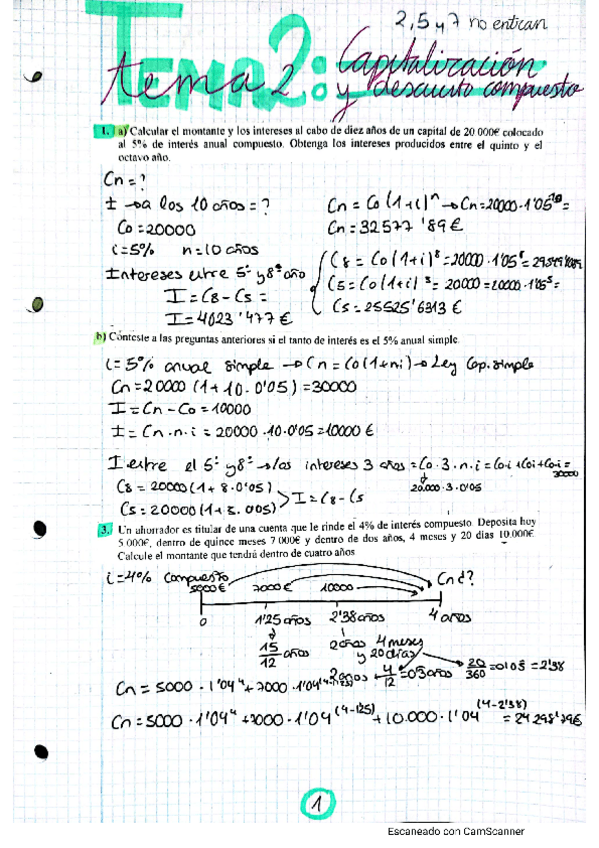 2,5 y 7 no entran
Tema 2: Capitalización
tema 2: y descuento compuesto
1. a) Calcular el montante y los intereses al cabo de diez años de un capital de 20 000€ colocado
al 5% de interés anual compuesto. Obtenga los intereses producidos entre el quinto y el
octavo año.
Cn = ?
I → a los 10 años = ?
Co = 20000
i = 5% n = 10 años
Cn = Co (1+i)^n → Cn = 20000 · 1'05^10 =
Cn = 32577'89 €
Intereses entre 5º y 8º año
I = C8 - C5 =
I = 4023'477 €
C8 = Co (1+i)^8 = 20000 · 1'05^8 =
C5 = Co (1+i)^5 = 20000 = 20000 · 1'05^5 =
C5 = 25525'6313 €
b) Conteste a las preguntas anteriores si el tanto de interés es el 5% anual simple.
i = 5% anual simple → Cn = Co (1+ni) → Ley Cap. simple
Cn = 20000 (1 + 10 · 0'05) = 30000
I = Cn - Co = 10000
I = Cn · n · i = 20000 · 10 · 0'05 = 10000 €
I entre el 5º y 8º → los intereses 3 años = Co · 3 · n · i = Coi + Coi + Coi =
30000
20.000 · 3 · 0'05
C8 = 20000 (1 + 8 · 0'05)
C5 = 20000 (1 + 5 · 005) > I = C8 - C5
3. Un ahorrador es titular de una cuenta que le rinde el 4% de interés compuesto. Deposita hoy
5 000€, dentro de quince meses 7 000€ y dentro de dos años, 4 meses y 20 días 10.000€.
Calcule el montante que tendrá dentro de cuatro años
i = 4% compuesto
5000€ 7000€ 10000 Cn ¿?
0 1'25 años 2'38 años 4 años
15/12 años
2 años 4 meses
y 20 días
20/360 = 0'05 = 2'38
2 años + 4/12 =
Cn = 5000 · 1'04^4 + 7000 · 1'04
Cn = 5000 · 1'04^4 + 7000 · 1'04^(4-1'25) + 10.000 · 1'04^(4-2'38) = 24 298'79€
1
Escaneado con CamScanner